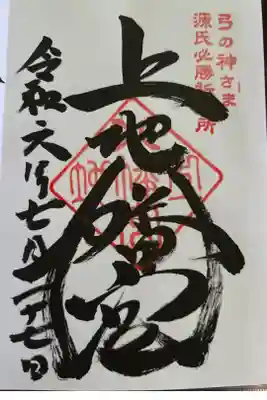 弓の神さま
源氏必勝祈願所
上地八幡宮
令和六年七月二十七日